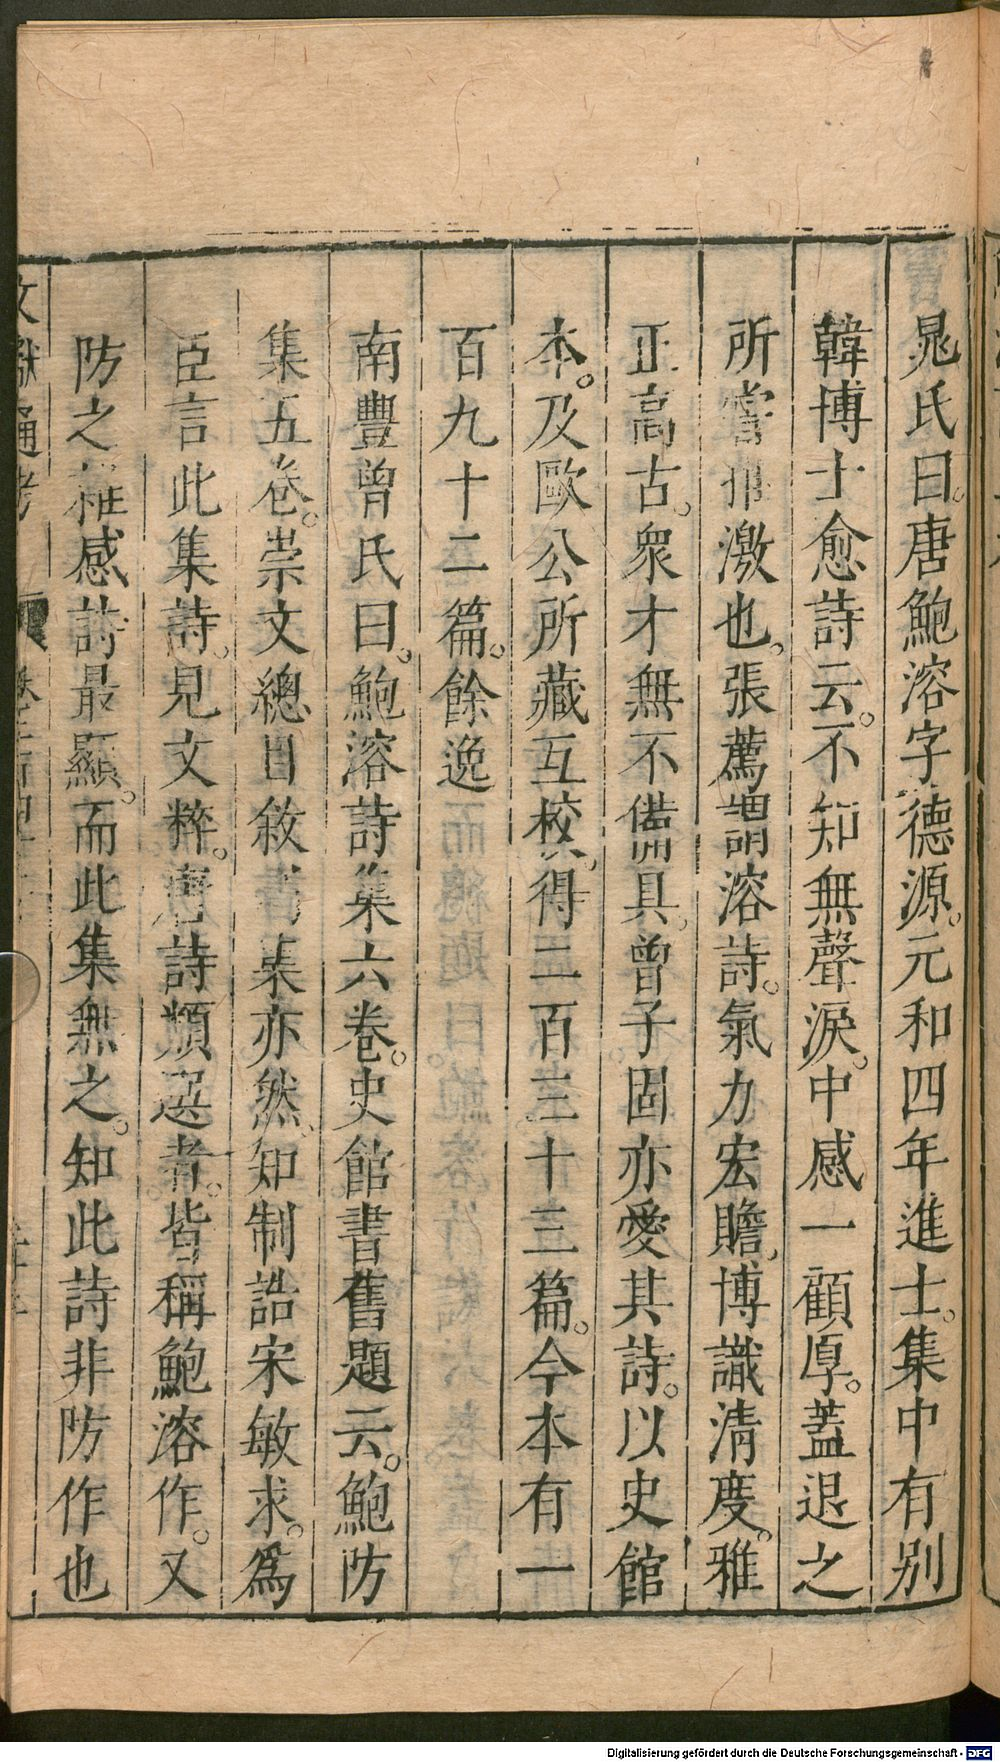 晁氏曰。唐鮑溶字德源。元和四年進士。集中有別
韓博士愈詩云。不知無聲淚。中感一顧厚。蓋退之
所嘗推激也。張薦謂溶詩。氣力宏贍。博識清度。雅
正高古。衆才無不備具。曾子固亦愛其詩。以史館
本。及歐公所藏互校。得二百三十三篇。今本有一
百九十二篇。餘逸
南豐曾氏曰。鮑溶詩集六卷。史館書舊題云。鮑防
集五卷。崇文總目敘書集亦然。知制誥宋敏求。爲
臣言此集詩。見文粹。唐詩類選者。皆稱鮑溶作。又
防之雜感詩最顯。而此集無之。知此詩非防作也
文獻通考
Digitalisierung gefördert durch die Deutsche Forschungsgemeinschaft - DFG